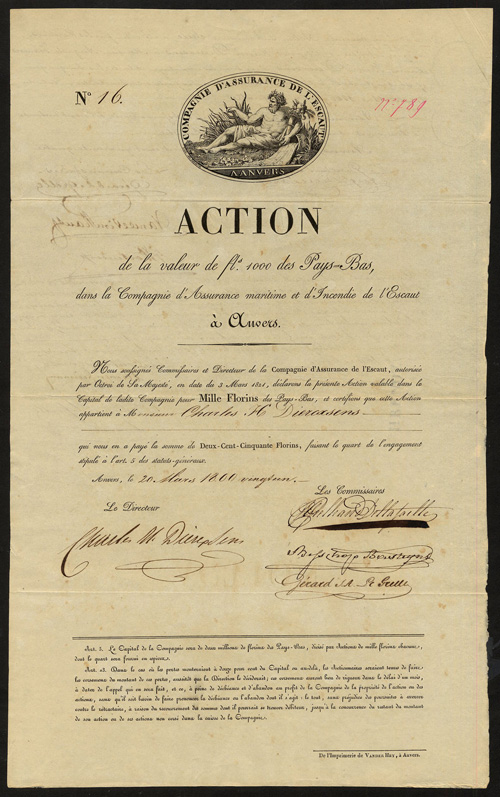 N° 16.
COMPAGNIE D'ASSURANCE DE L'ESCAUT
A ANVERS
N° 789
ACTION
de la valeur de fls. 1000 des Pays-Bas,
dans la Compagnie d'Assurance maritime et d'Incendie de l'Escaut
à Anvers.
Nous soussignés Commissaires et Directeur de la Compagnie d'Assurance de l'Escaut, autorisée
par Octroi de Sa Majesté, en date du 3 Mars 1821, déclarons la présente Action valable dans le
Capital de ladite Compagnie pour Mille Florins des Pays-Bas, et certifions que cette Action
appartient à Monsieur Charles Hri Dierexsens
qui nous en a payé la somme de Deux-Cent-Cinquante Florins, faisant le quart de l'engagement
stipulé à l'art. 5 des statuts-généraux.
Anvers, le 20 Mars 1800 vingtun.
Le Directeur
Les Commissaires
Charles H. Dierexsens
Gérard J.A. De Greef
Art. 5. Le Capital de la Compagnie sera de deux millions de florins des Pays-Bas, divisé par Actions de mille florins chacune,
dont le quart sera fourni en espèces.
Art. 13. Dans le cas où les pertes monteraient à deux pour cent du Capital ou au-delà, les Actionnaires seraient tenus de faire
les versemens du montant de ces pertes, aussitôt que la Direction le déciderait; ces versemens auront lieu de rigueur dans le délai d'un mois,
à dater de l'appel qui en sera fait, et ce, à peine de déchéance et d'abandon au profit de la Compagnie de la propriété de l'action ou des
actions, sans qu'il soit besoin de faire prononcer la déchéance ou l'abandon dont il s'agit: le tout, sans préjudice des poursuites à exercer
contre le retardataire, à raison du recouvrement des sommes dont il pourrait se trouver débiteur, jusqu'à la concurrence du restant du montant
de son action ou de ses actions non versé dans la caisse de la Compagnie.
De l'Imprimerie de VANDER HEY, à Anvers.